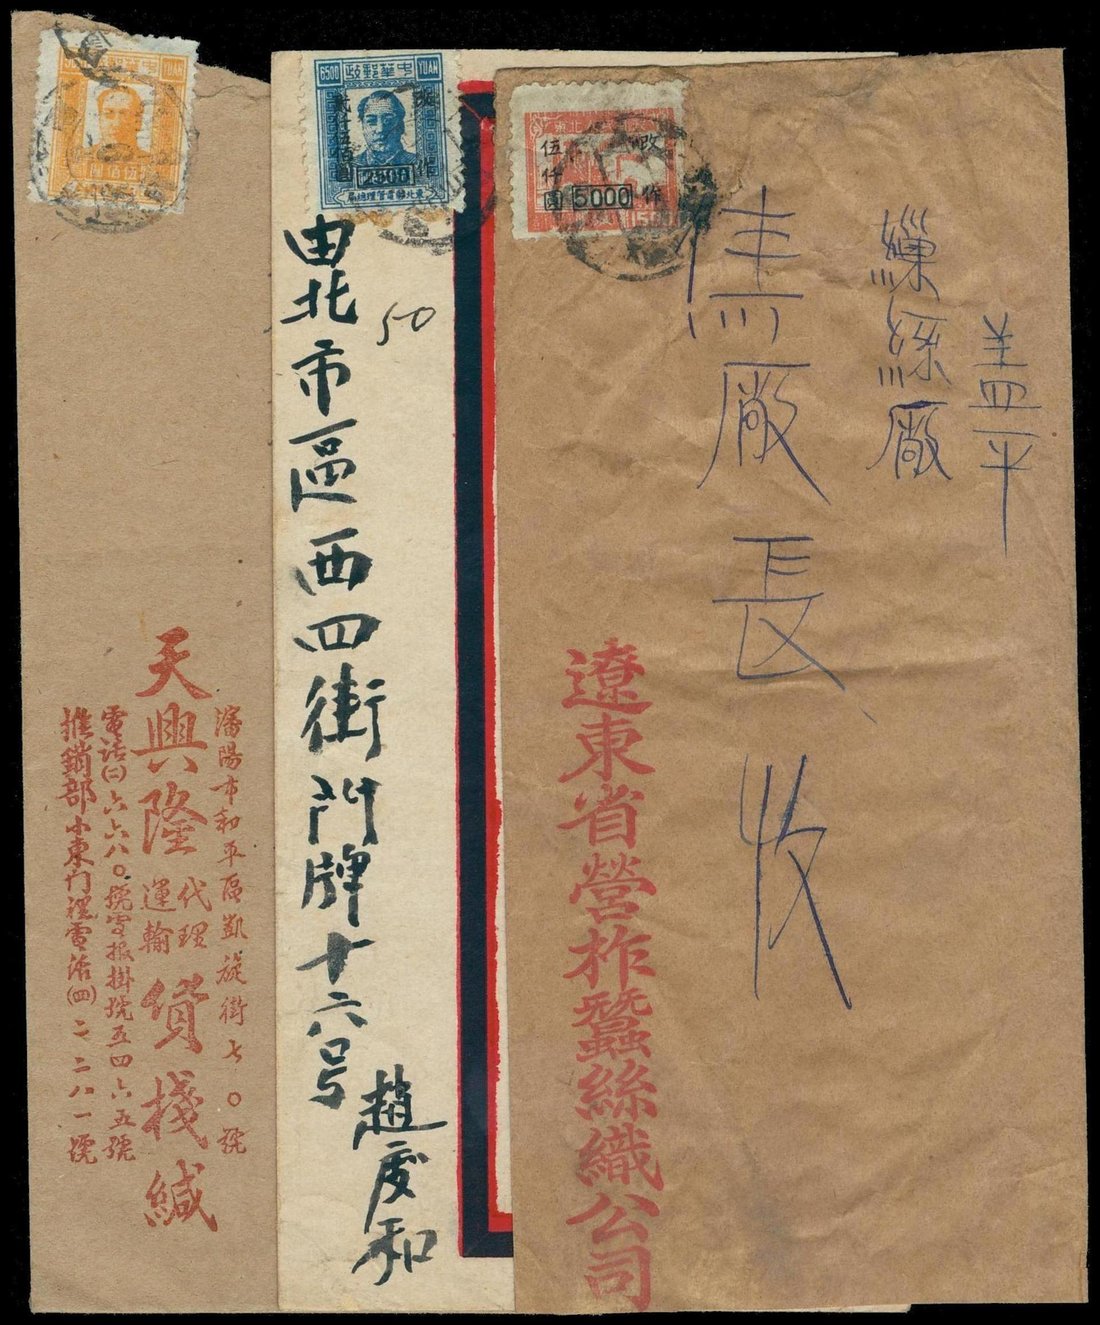 伍佰圓
YUAN
6500
中華郵政
YUAN
改作
貳仟伍佰圓
2500
東北郵電管理總局
改作
伍仟圓
5000
1500
瀋陽市和平區凱旋街七〇號
天興隆
代理
運輸
貨棧緘
電話(二)六六八〇號電報掛號五四六五號
推銷部小東門裡電話(四)二二八一號
由北市區西四街門牌十六号
趙慶和
50
盖平
繅絲廠
廠長收
遼東省營柞蠶絲織公司